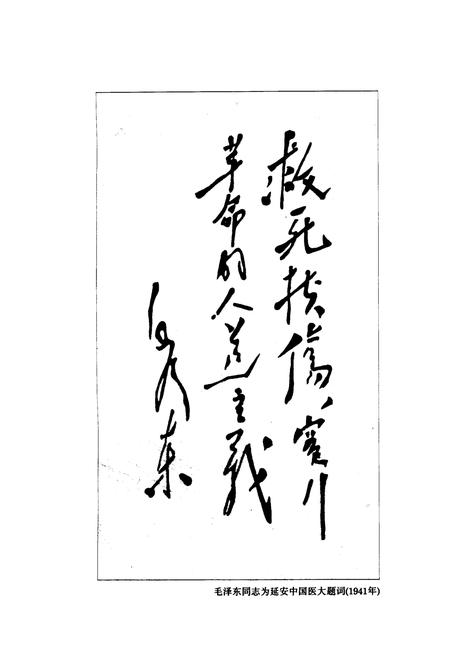 救死扶傷、實行
革命的人道主義
毛澤東
毛泽东同志为延安中国医大题词(1941年)